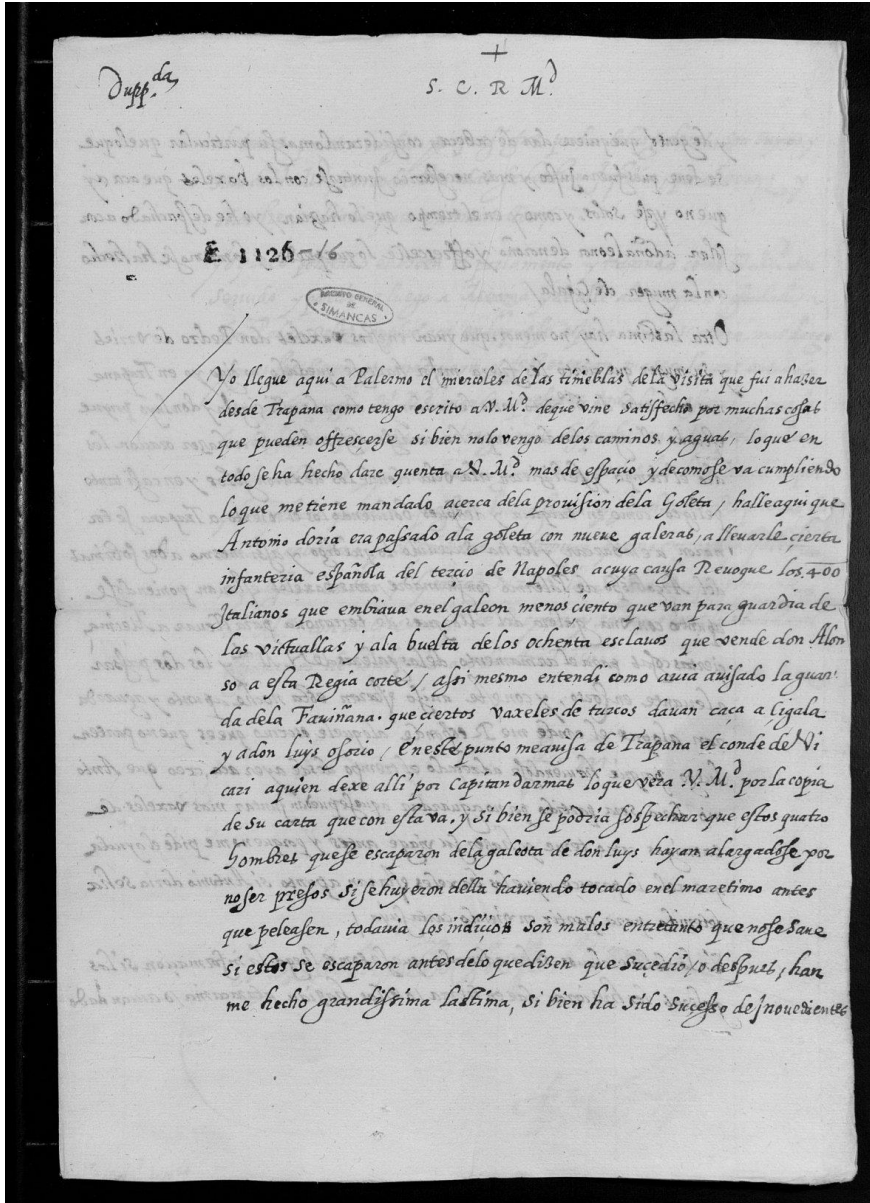 Dupp.da
+
S. C. R. M.d
E 1126-16
ARCHIVO GENERAL
DE
SIMANCAS
Yo llegue aqui a Palermo el miercoles de las tinieblas de la visita que fui a hazer
desde Trapana como tengo escrito a V. M.d de que vine satisfecho por muchas cosas
que pueden offrescerse si bien no lo vengo de los caminos y aguas, lo que en
todo se ha hecho dare quenta a V. M.d mas de espaçio y de como se va cumpliendo
lo que me tiene mandado açerca de la provision de la Goleta, halle aqui que
Antonio doria era passado a la goleta con nueve galeras, a llevarle çierta
infanteria española del terçio de Napoles a cuya causa Revoque los 400
Italianos que embiava en el galeon menos ciento que van para guardia de
las victuallas y a la buelta de los ochenta esclavos que vende don Alon
so a esta Regia corte / assi mesmo entendi como avia avisado la guar
da de la Faviñana. que çiertos vaxeles de turcos davan caça a Çigala
y a don luys osorio / En este punto me avisa de Trapana el conde de Vi
cari a quien dexe alli por Capitan darmas lo que vera V. M.d por la copia
de su carta que con esta va. y si bien se podria sospechar que estos quatro
hombres que se escaparon de la galeota de don luys hayan alargadose por
no ser presos si se huyeron della haviendo tocado en el maretimo antes
que peleasen, todavia los indiçios son malos entretanto que no se save
si estos se escaparon antes de lo que dizen que sucedió / o despues, han
me hecho grandissima lastima, si bien ha sido sucesso de jnovedientes